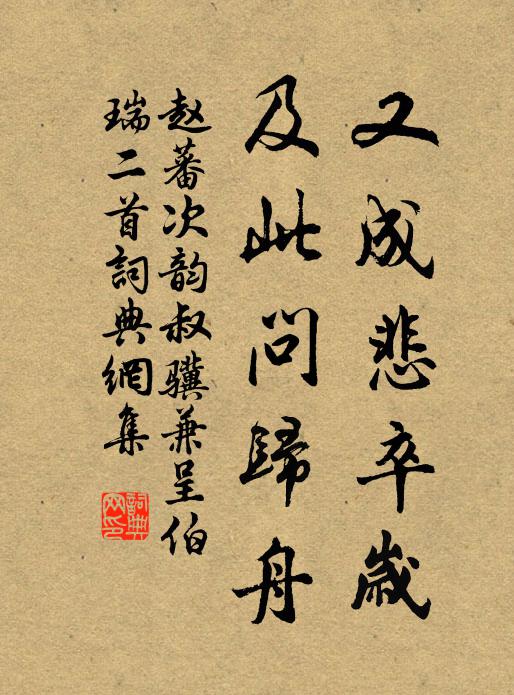 又成悲卒歲
及此問歸舟
赵蕃次韵叔骥兼呈伯
瑞二首詞典網集
詞典網印